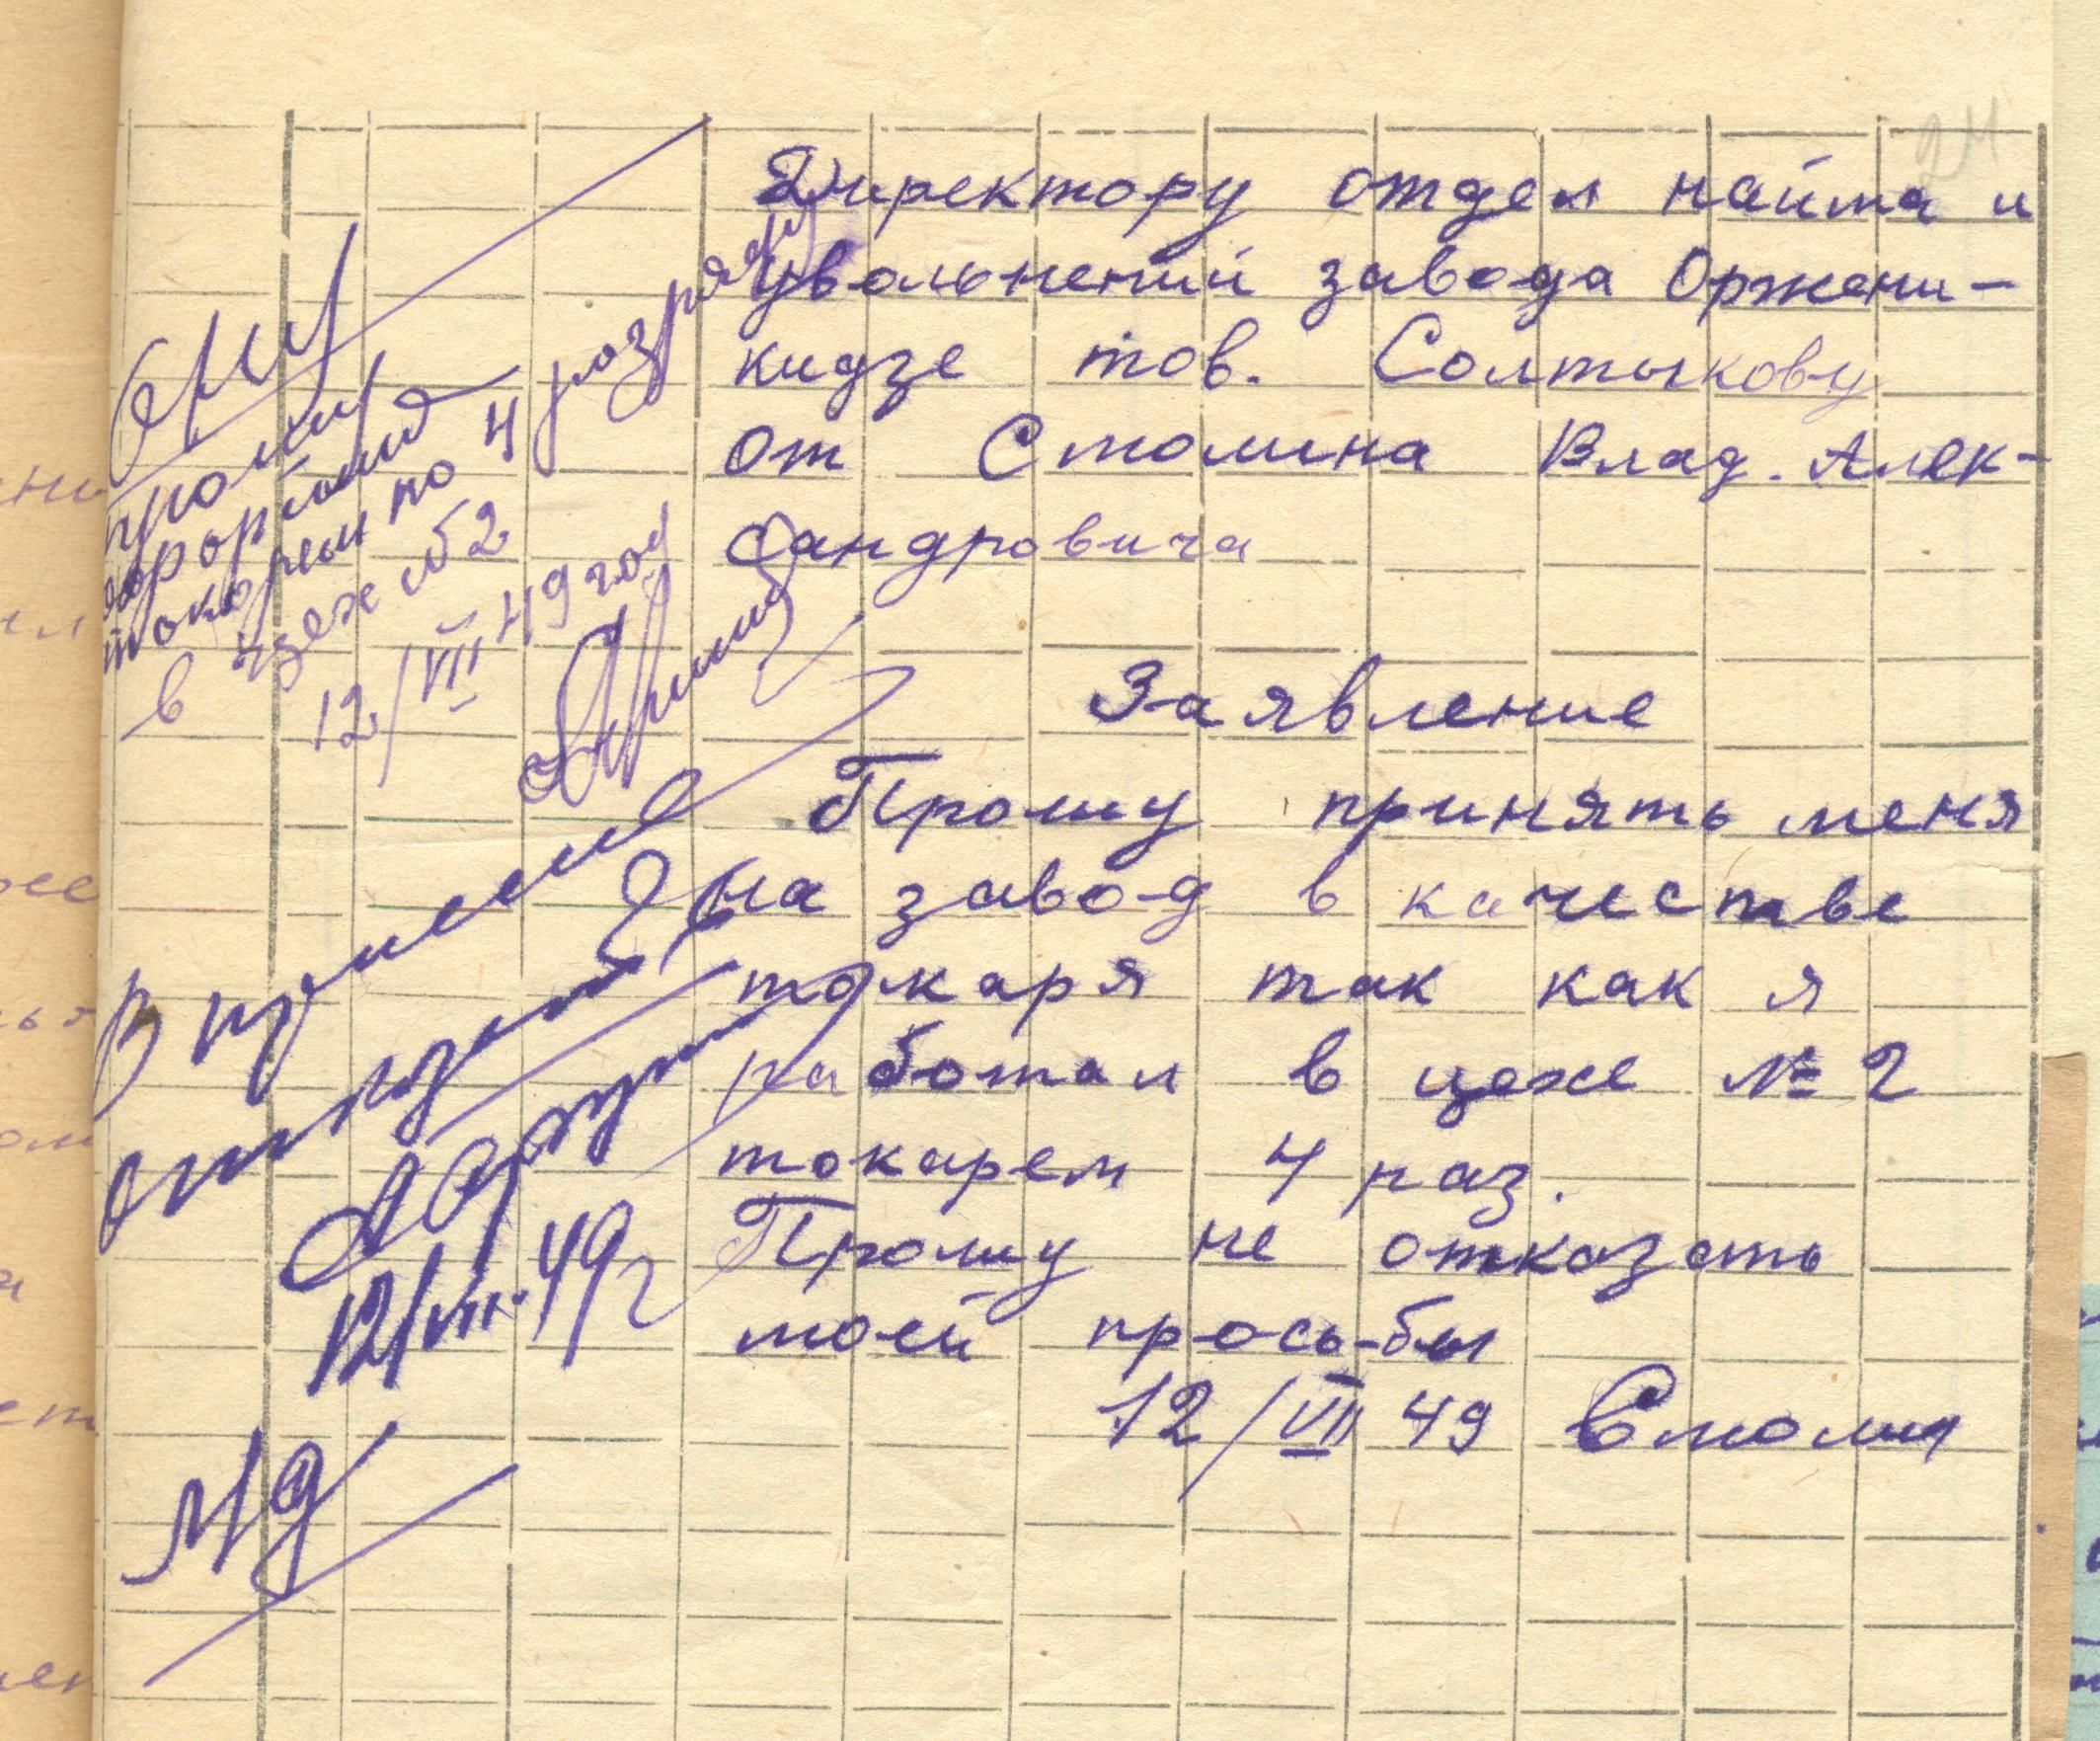 Директору отдел найма и
увольнений завода Оржени-
кидзе тов. Солтыкову
от Смолина Влад. Алек-
сандровича
Заявление
Прошу принять меня
на завод в качестве
токаря так как я
работал в цехе № 2
токарем 4 раз.
Прошу не отказать
моей прось-бы
12/VII 49 Смолин
ОНУ
прошу
оформить
токорем по 4 разряду
в цех № 2
12/VIII 49 год
В приеме
отказать
12/VIII-49 г
24